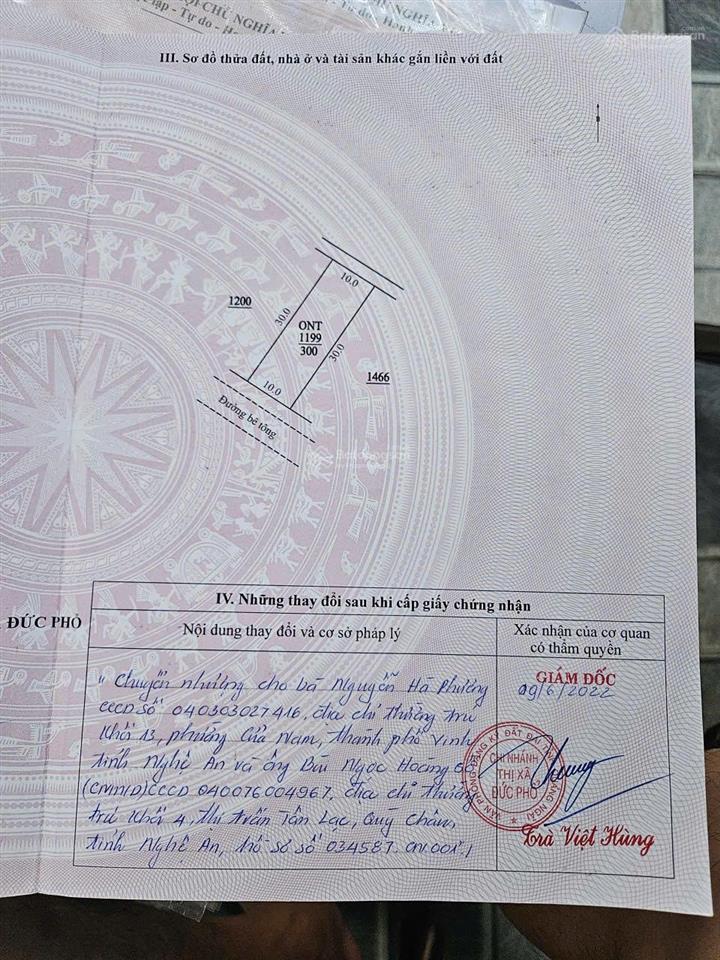 CHỦ NGHĨA
lập - Tự do - Hạnh
III. Sơ đồ thửa đất, nhà ở và tài sản khác gắn liền với đất
10.0
1200
30.0
ONT
1199
300
30.0
1466
10.0
Đường bê tông
Batdongsan
IV. Những thay đổi sau khi cấp giấy chứng nhận
ĐỨC PHỔ
Nội dung thay đổi và cơ sở pháp lý
Xác nhận của cơ quan
có thẩm quyền
"Chuyển nhượng cho bà Nguyễn Hà Phương
CCCD số 040303027416, địa chỉ thường trú
Khối 13, phường Cửa Nam, thành phố Vinh
tỉnh Nghệ An và ông Bùi Ngọc Hoàng
(CMND)CCCD 040076004967, địa chỉ thường
trú Khối 4, thị trấn Tân Lạc, Quỳ Châu,
tỉnh Nghệ An, hồ sơ số 034587.CN.001"
GIÁM ĐỐC
09/6/2022
VĂN PHÒNG ĐĂNG KÝ ĐẤT ĐAI TỈNH QUẢNG NGÃI
CHI NHÁNH
THỊ XÃ
ĐỨC PHỔ
Trà Việt Hùng